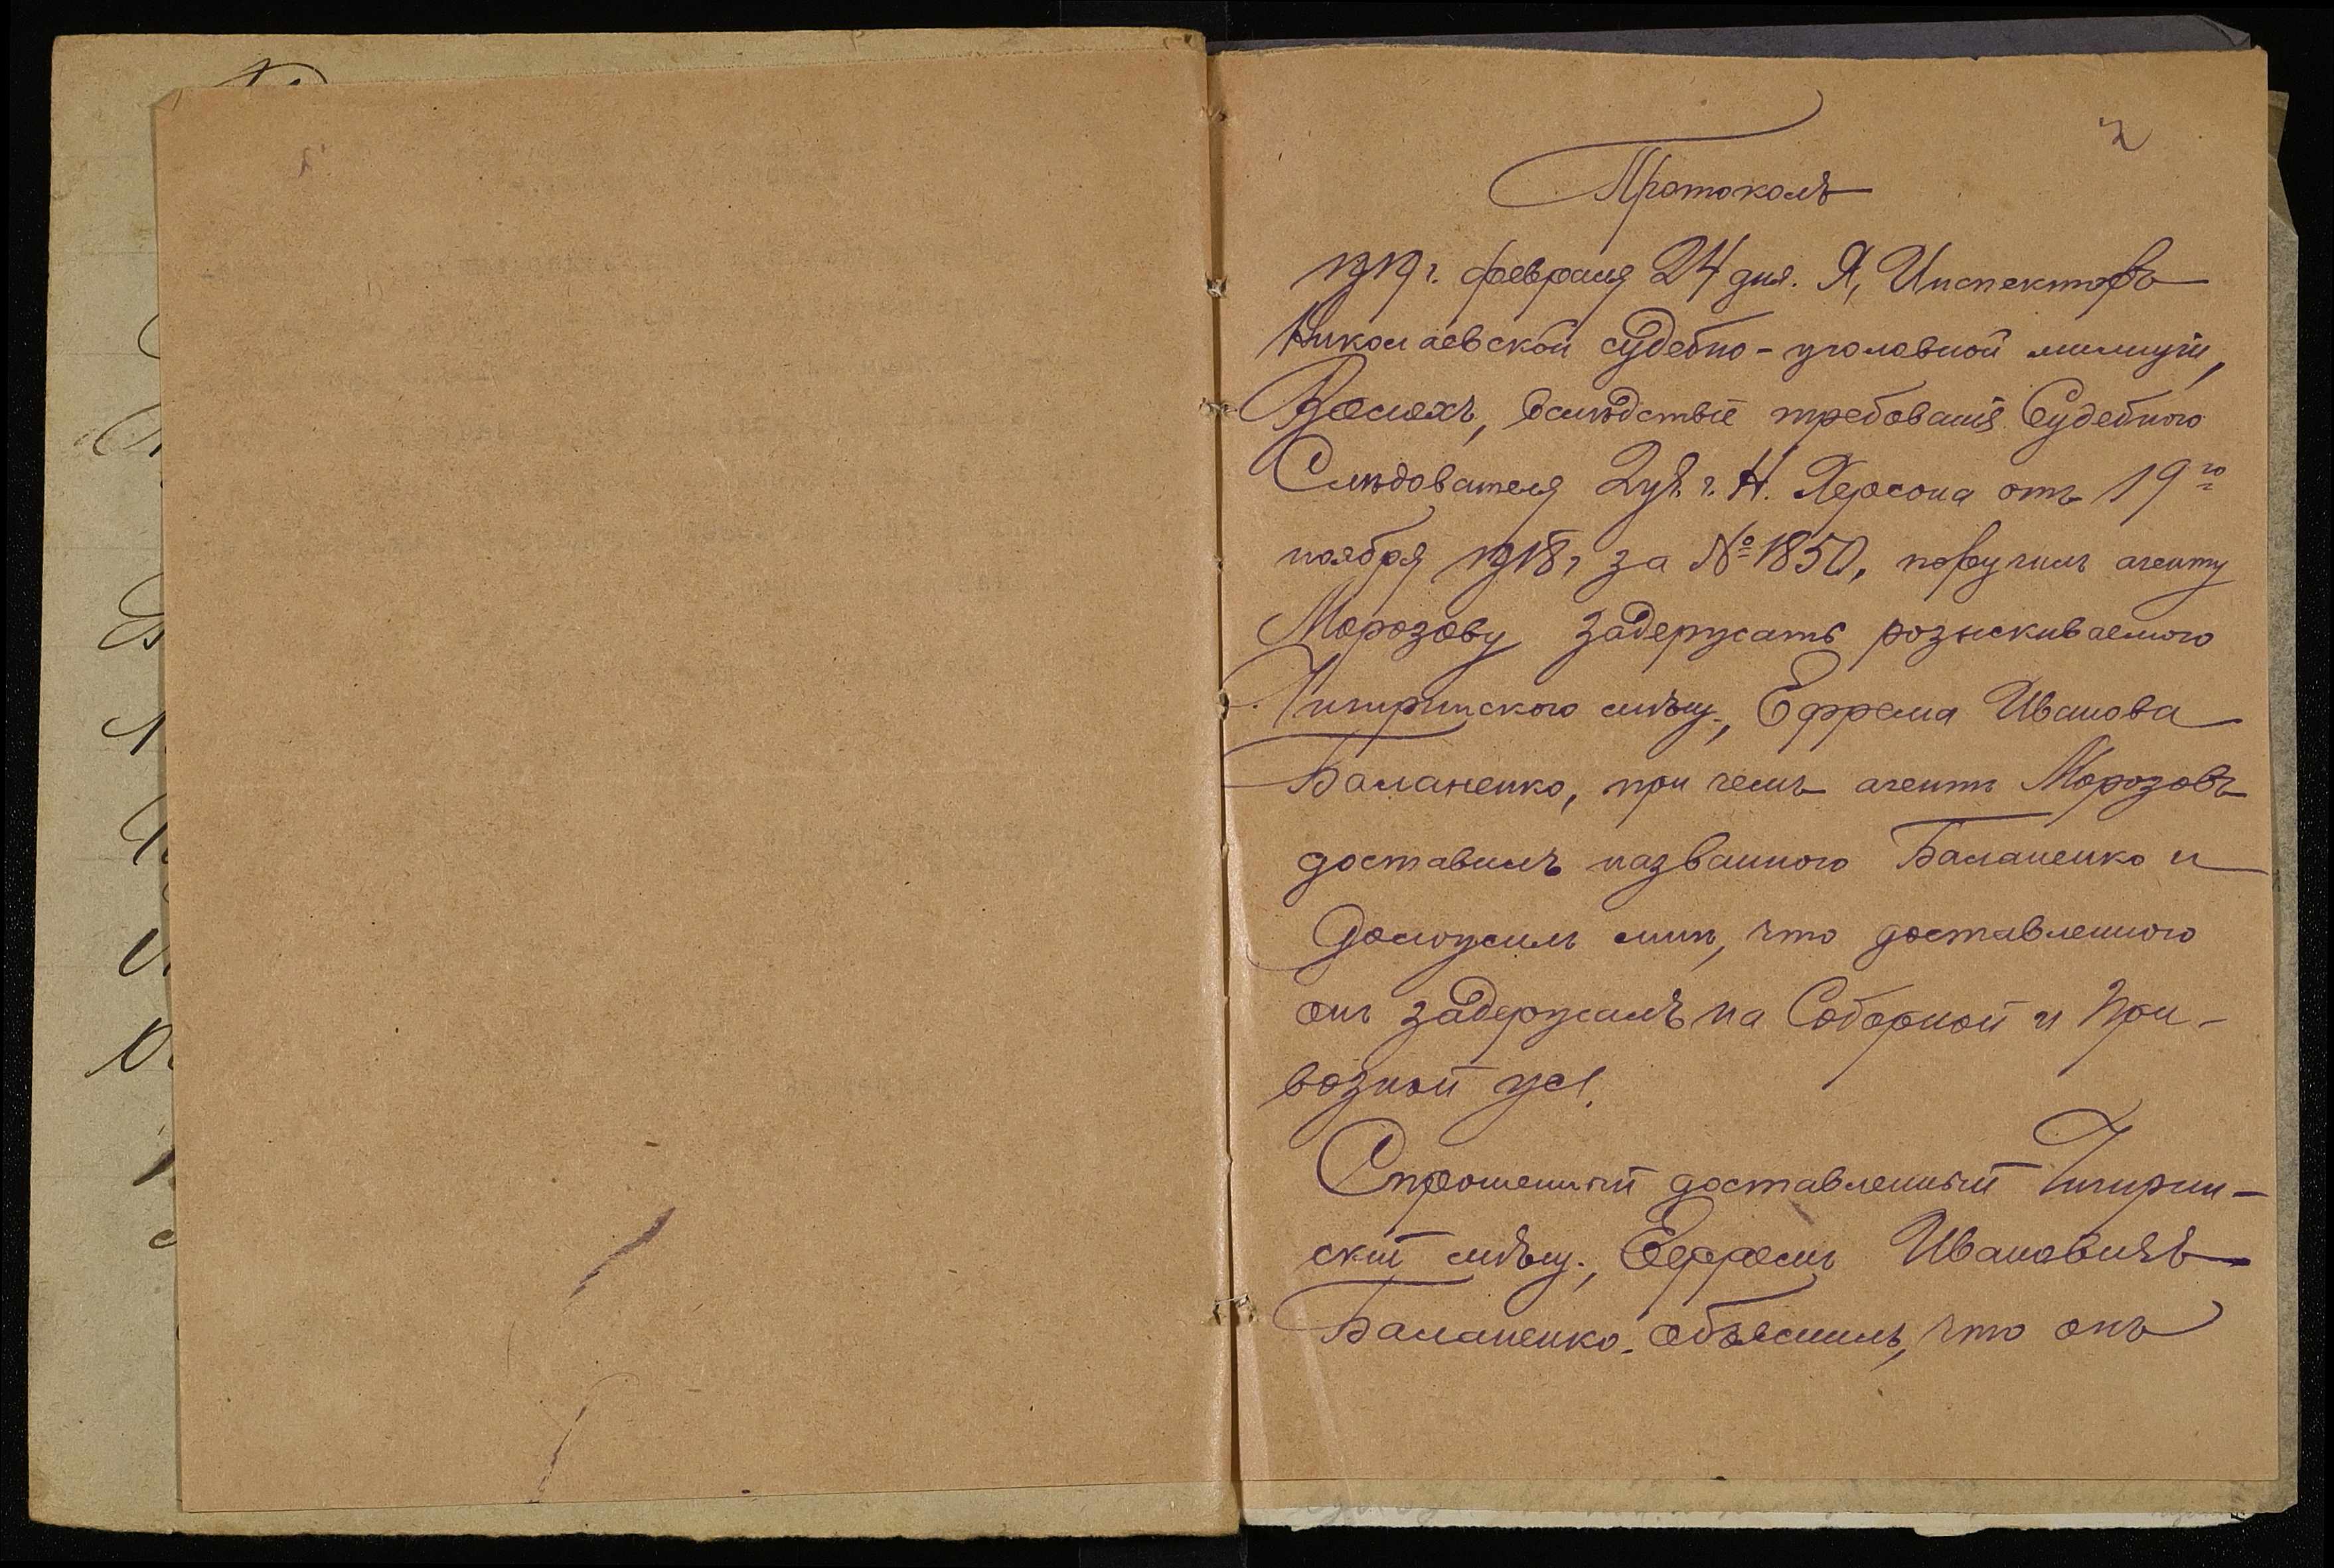 2
Протоколъ
1919 г. февраля 24 дня. Я, Инспекторъ
Николаевской судебно-уголовной милиціи,
вслѣдствіе требованія Судебного
Слѣдователя 2 уч. г. Н. Херсона отъ 19го
ноября 1918 г за № 1850, поручилъ агенту
Морозову задержать розыскиваемого
Чигиринского мѣщ., Ефрема Иванова
Баланенко, при чемъ агентъ Морозовъ
доставилъ названного Баланенко и
доложилъ мнѣ, что доставленного
онъ задержалъ на Соборной и При-
возной ул.
Спрошенный доставленный Чигирин-
скій мѣщ., Ефремъ Ивановичъ
Баланенко объяснилъ, что онъ